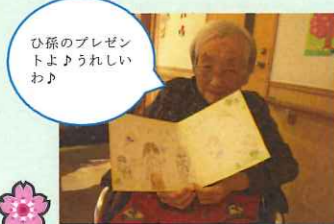 ひ孫のプレゼン
トよ♪うれしい
わ♪